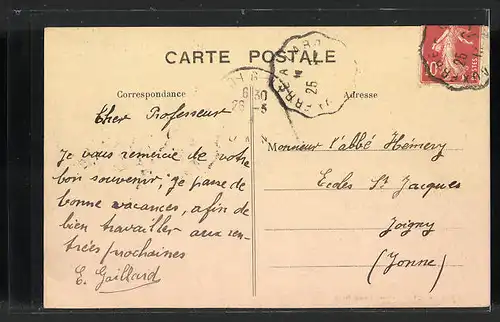 CARTE POSTALE
Correspondance
Adresse
Cher Professeur
Je vous remercie de votre
bon souvenir, je passe de
bonne vacances, afin de
bien travailler aux ren-
trées prochaines
E. Gaillard
Monsieur l'abbé Hémery
Ecoles St Jacques
Joigny
(Yonne)
6 30
26 -5
25
25